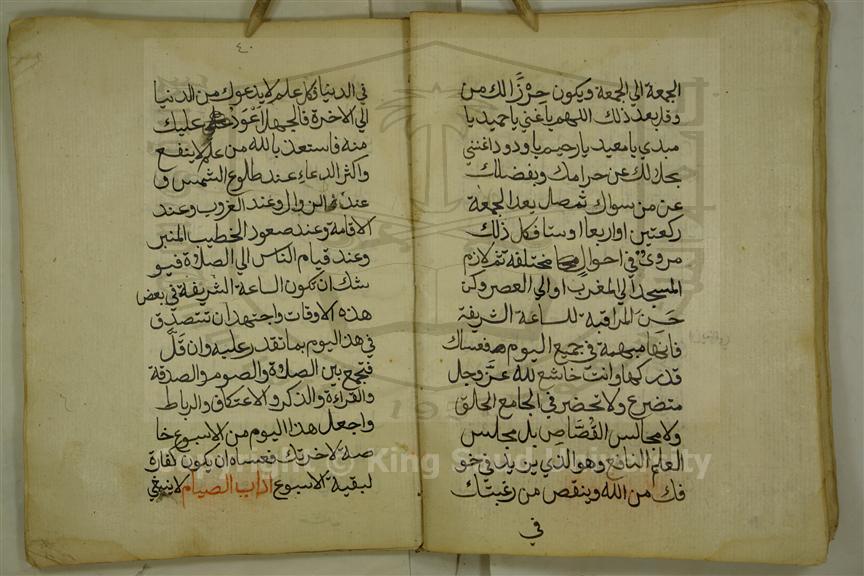 الجمعة الي الجمعة ويكون حرزا لك من
وقل بعد ذلك اللهم ياغني ياحميد يا
مبدي يا معيد يارحيم ياودود اغنني
بحلالك عن حرامك وبفضلك
عن من سواك ثم صل بعد الجمعة
ركعتين او اربعا او ستا فكل ذلك
مروي في احوال مختلفة ثم لازم
المسجد الي المغرب او الي العصر وكن
حسن المراقبة للساعة الشريفة
فانها مبهمة في جميع اليوم فعساك
تدركها وانت خاشع لله عز وجل
متضرع ولا تحضر في الجامع الحلق
ولا مجالس القصاص بل مجلس
العلم النافع وهو الذي يزيد في خو
فك من الله وينقص من رغبتك
في
٤٠
في الدنيا فكل علم لا يدعوك من الدنيا
الي الاخرة فالجهل اعود عليك
منه فاستعذ بالله من علم لا ينفع
واكثر الدعاء عند طلوع الشمس و
عند الزوال وعند الغروب وعند
الاقامة وعند صعود الخطيب المنبر
وعند قيام الناس الي الصلاة فيو
شك ان تكون الساعة الشريفة في بعض
هذه الاوقات واجتهد ان تتصدق
في هذا اليوم بما تقدر عليه وان قل
فتجمع بين الصلاة والصوم والصدقة
والقراءة والذكر والاعتكاف والرباط
واجعل هذا اليوم من الاسبوع خا
صة لاخرتك فعساه ان يكون كفارة
لبقية الاسبوع اداب الصيام لا ينبغي
Copyright © King Saud University